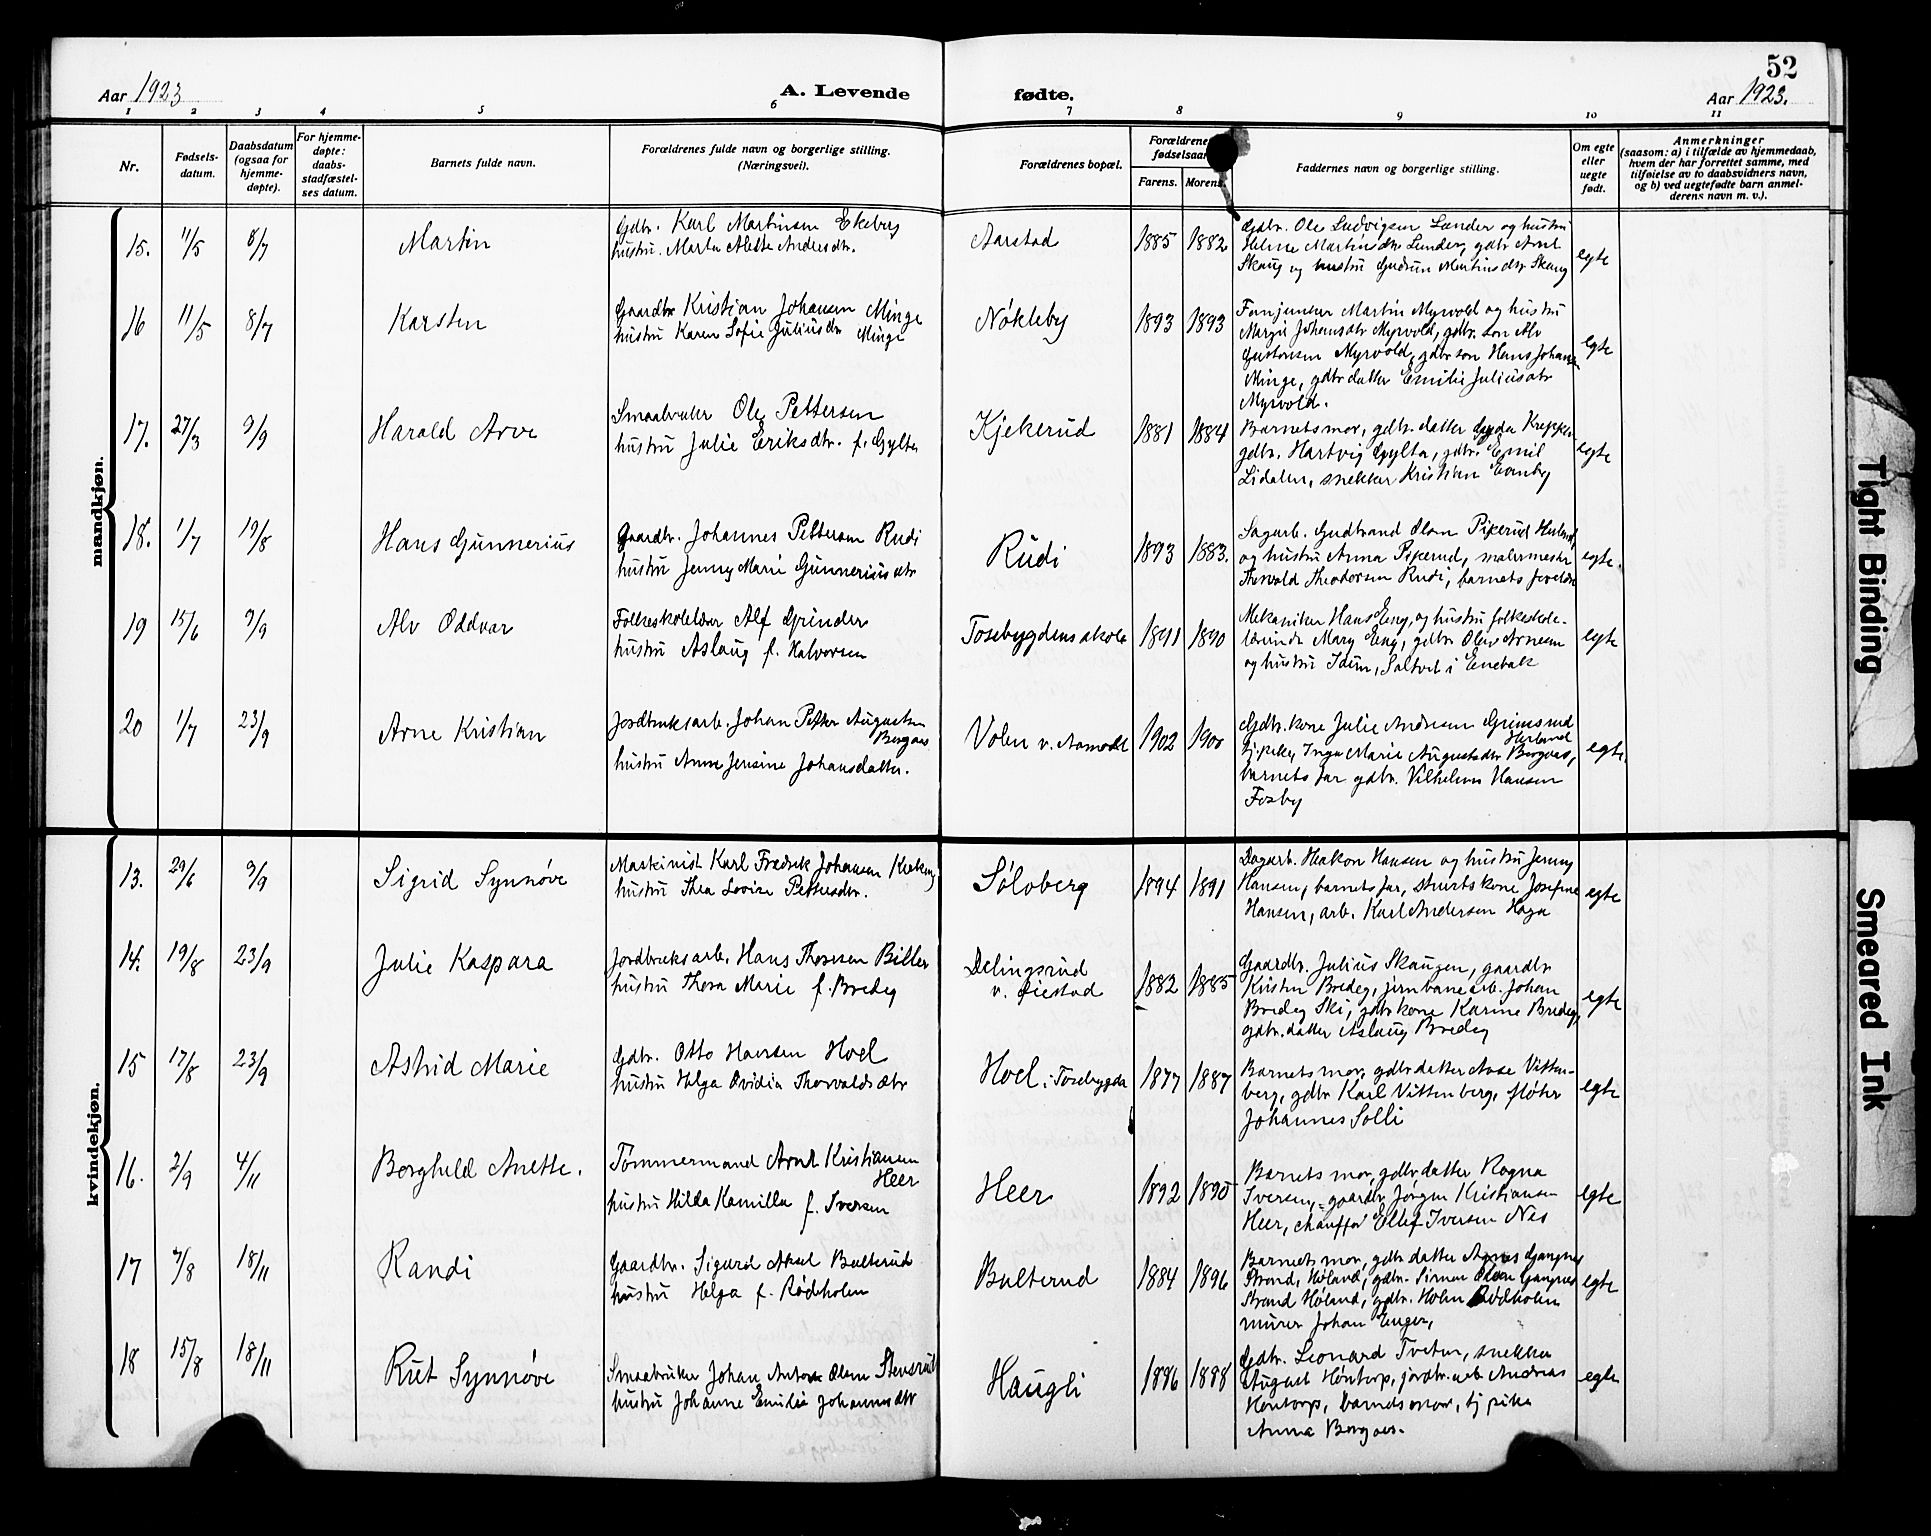 52
Aar 1923
A. Levende
fødte.
Aar 1923.
1 2 3 4 5 6 7 8 9 10 11
Nr.
Fødsels-
datum.
Daabsdatum
(ogsaa for
hjemme-
døpte).
For hjemme-
døpte:
daabs-
stadfæstel-
ses datum.
Barnets fulde navn.
Forældrenes fulde navn og borgerlige stilling.
(Næringsvei).
Forældrenes bopæl.
Forældrenes
fødselsaar
Farens. Morens.
Faddernes navn og borgerlige stilling.
Om egte
eller
uegte
født.
Anmerkninger
(saasom: a) i tilfælde av hjemmedaab,
hvem der har forrettet samme, med
tilføielse av to daabsvidners navn,
og b) ved uegtefødte barn anmel-
derens navn m. v.).
mandkjøn.
15. 11/5 8/7 Martin
Gdbr. Karl Martinsen Ekeberg
hustru. Marta Alette Andersdtr.
Aarstad 1885 1882
Gdbr. Ole Ludvigsen Lunder og hustru
Helene Martinsdtr Lunder, gdbr Arnt
Skaug og hustru Gudrun Martinsdtr Skaug
egte
16 11/5 8/7 Karsten
Gaardbr Kristian Johansen Minge
hustru Karen Sofie Juliusdtr Minge
Nøkleby 1893 1893
Fanjunker Martin Myrvold og hustru
Margit Johansdtr Myrvold, gdbr. søn Alv
Gustavsen Myrvold, gdbr søn Hans Johansen
Minge, gdbr datter Emilie Juliusdtr
Myrvold.
egte
17. 27/3 9/9 Harald Arve
Smaabruker Ole Pettersen
hustru Julie Eriksdtr. f. Gylta
Kjekerud 1881 1884
Barnets mor, gdbr. datter Lyda Krepper
gdbr. Hartvig Gylta, gdbr. Emil
Lidalen, snekker Kristian Evenby
egte
18. 1/7 19/8 Hans Gunnerius
Gaardbr. Johannes Pettersen Rudi
hustru Jenny Marie Gunneriusdtr
Rudi 1893 1883.
Sagarb. Gudbrand Olsen Pikerud
og hustru Anna Pikerud, malermester
Thorvald Theodorsen Rudi, barnets forældre
egte.
19 15/6 9/9 Alv Oddvar
Folkeskolelærer Alf Grinder
hustru Aslaug f. Halvorsen
Tosebygdens skole 1891 1890
Mekaniker Hans Eng, og hustru folkeskole-
lærerinde Mary Eng, gdbr Olav Arnesen
og hustru Idun, Saltvet i Enebak
egte
20 1/7 23/9 Arne Kristian
Jordbruksarb. Johan Petter Augustsen
Borgaas
hustru Anna Jensine Johansdatter.
Volen v. Aamodt 1902 1900
Gdbr. kone Julie Andresen Grimsrud
Herland
tj.pike, Inga Marie Augustsdtr Borgaas,
barnets far gdbr. Vilhelm Hansen
Fosby
egte.
kvindekjøn.
13. 29/6 9/9 Sigrid Synnøve
Maskinist Karl Fredrik Johansen
hustru Thea Lovise Pettersdtr.
Søloberg 1894 1891
Dagarb. Haakon Hansen og hustru Jenny
Hansen, barnets far, stuerts kone Josefine
Hansen, arb. Karl Andersen Haga
egte
14. 19/8 23/9 Julie Kaspara
Jordbruksarb. Hans Thoresen Biller
hustru Thora Marie f. Bredeg
Delingsrud
v. Øiestad 1882 1885
Gaardbr. Julius Skaugen, gaardbr
Kristen Bredeg, jernbanearb. Johan
Bredeg Ski, gdbr kone Karine Bredeg,
gdbr. datter Aslaug Bredeg
egte
15 17/8 23/9 Astrid Marie
Gdbr. Otto Hansen Hoel
hustru Helga Ovidia Thorvaldsdtr
Hoel i Tosebygda 1877 1887
Barnets mor, gdbr datter Aase Vitten-
berg, gdbr Karl Vittenberg, fløter
Johannes Solli
egte
16. 2/9 4/11 Borghild Anette.
Tømmermand Arnt Kristiansen
Heer
hustru Hilda Kamilla f. Iversen
Heer 1892 1890
Barnets mor, gdbr datter Ragna
Iversen, gaardbr Jørgen Kristiansen
Heer, chauffør Ellef Iversen Næs
egte
17 7/8 18/11 Randi
Gaardbr. Sigurd Aksel Bulterud
hustru Helga f. Rødholen
Bulterud 1884 1896
Barnets mor, gdbr datter Agnes Gangnes
Strand, Høland, gdbr. Simen Olsen Gangnes
Strand Høland, gdbr. Holm Rødholen
murer Johan Enger,
egte
18 15/8 18/11 Rut Synnøve
Smaabruker Johan Anton Olsen Stensrud
hustru Johanne Emilie Johannesdtr
Haugli 1896 1898
Gdbr. Leonard Tveter, snekker
August Høntorp, jordbr. arb Andreas
Høntorp, barnets mor, tj pike
Anna Borgaas.
egte
Tight Binding
Smeared Ink